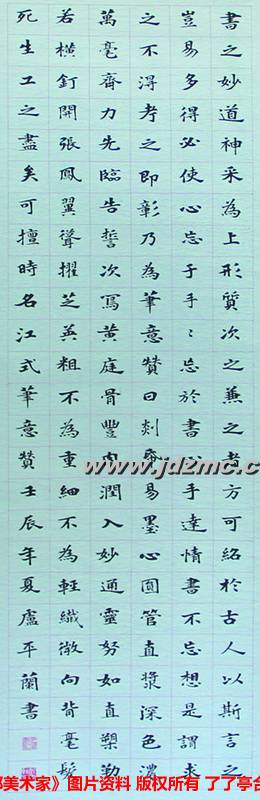 書之妙道神采為上形質次之兼之者方可紹於古人以斯言之
豈易多得必使心忘于手〻忘於書心手達情書不忘想是謂求
之不得考之即彰乃為筆意贊曰剡易墨心圓管直漿深色濃
萬毫齊力先臨告誓次寫黃庭骨豐肉潤入妙通靈努如直槊勒
若橫釘開張鳳翼聳擢芝英粗不為重細不為輕纖微向背毫髮
死生工之盡矣可擅時名江式筆意贊壬辰年夏盧平蘭書
www.jd2mc.com
美术家》图片资料 版权所有 了了亭